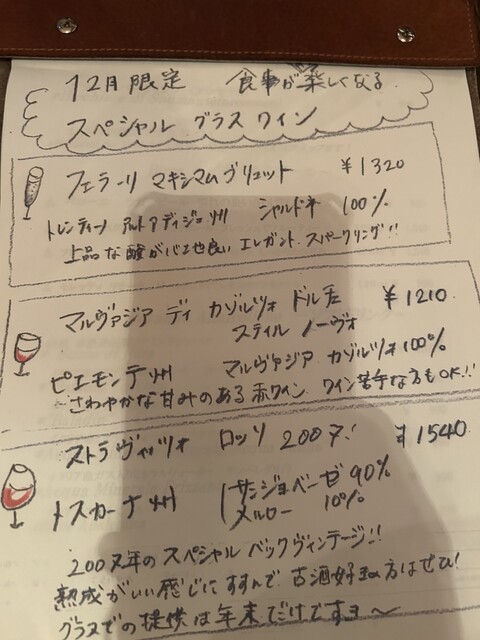 12月限定 食事が楽しくなる
スペシャル グラスワイン
フェラーリ マキシマム ブリュット ¥1320
トレンティーノ アルト アディジェ州 シャルドネ 100%
上品な酸がバランス良い エレガント スパークリング!!
マルヴァジア ディ カゾルツォ ドルチェ ¥1210
スティル ノーヴォ
ピエモンテ州 マルヴァジア カゾルツォ 100%
さわやかな甘みのある赤ワイン ワイン苦手な方もOK!!
ストラヴィッツォ ロッソ 2007! ¥1540
トスカーナ州 サンジョベーゼ 90%
メルロー 10%
2007年のスペシャル バックヴィンテージ!!
熟成がいい感じにすすんで 古酒好きの方はぜひ!
グラスでの提供は年末だけですヨ〜